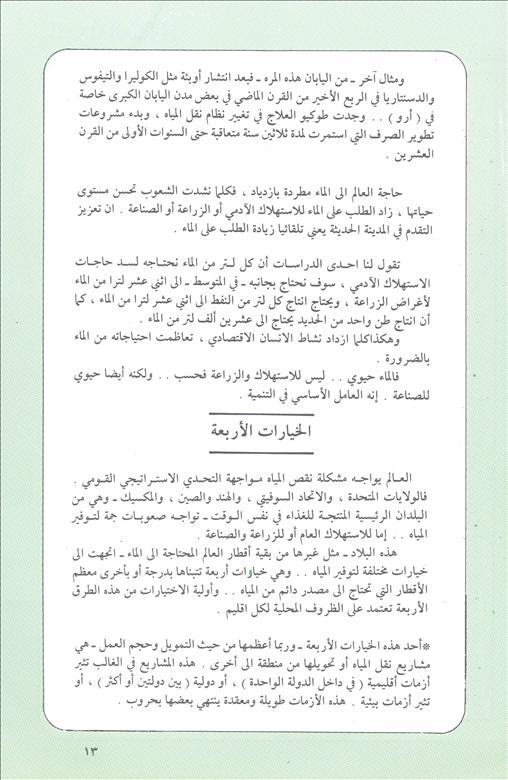 ومثال آخر ـ من اليابان هذه المره ـ فبعد انتشار أوبئة مثل الكوليرا والتيفوس
والدسنتاريا في الربع الأخير من القرن الماضي في بعض مدن اليابان الكبرى خاصة
في ( أرو ) . . وجدت طوكيو العلاج في تغيير نظام نقل المياه ، وبدء مشروعات
تطوير الصرف التي استمرت لمدة ثلاثين سنة متعاقبة حتى السنوات الأولى من القرن
العشرين .
حاجة العالم الى الماء مطردة بازدياد ، فكلما نشدت الشعوب تحسن مستوى
حياتها ، زاد الطلب على الماء للاستهلاك الآدمي أو الزراعة أو الصناعة . ان تعزيز
التقدم في المدينة الحديثة يعني تلقائيا زيادة الطلب على الماء .
تقول لنا احدى الدراسات أن كل لتر من الماء نحتاجه لسد حاجات
الاستهلاك الآدمي ، سوف نحتاج بجانبه ـ في المتوسط ـ الى اثني عشر لترا من الماء
لأغراض الزراعة ، ويحتاج انتاج كل لتر من النفط الى اثني عشر لترا من الماء ، كما
أن انتاج طن واحد من الحديد يحتاج الى عشرين ألف لتر من الماء .
وهكذاكلما ازداد نشاط الانسان الاقتصادي ، تعاظمت احتياجاته من الماء
بالضرورة .
فالماء حيوي . . ليس للاستهلاك والزراعة فحسب . . ولكنه أيضا حيوي
للصناعة . إنه العامل الأساسي في التنمية .
الخيارات الأربعة
العالم يواجه مشكلة نقص المياه مواجهة التحدي الاستراتيجي القومي .
فالولايات المتحدة ، والاتحاد السوفيتي ، والهند والصين ، والمكسيك ـ وهي من
البلدان الرئيسية المنتجة للغذاء في نفس الوقت ـ تواجه صعوبات جمة لتوفير
المياه . . إما للاستهلاك العام أو للزراعة والصناعة .
هذه البلاد ـ مثل غيرها من بقية أقطار العالم المحتاجة الى الماء ـ اتجهت الى
خيارات مختلفة لتوفير المياه . . وهي خيارات أربعة تتبناها بدرجة أو بأخرى معظم
الأقطار التي تحتاج الى مصدر دائم من المياه . . وأولية الاختيارات من هذه الطرق
الأربعة تعتمد على الظروف المحلية لكل اقليم .
*أحد هذه الخيارات الأربعة ـ وربما أعظمها من حيث التمويل وحجم العمل ـ هي
مشاريع نقل المياه أو تحويلها من منطقة الى أخرى . هذه المشاريع في الغالب تثير
أزمات أقليمية ( في داخل الدولة الواحدة ) ، أو دولية ( بين دولتين أو أكثر ) ، أو
تثير أزمات بيئية . هذه الأزمات طويلة ومعقدة ينتهي بعضها بحروب .
١٣